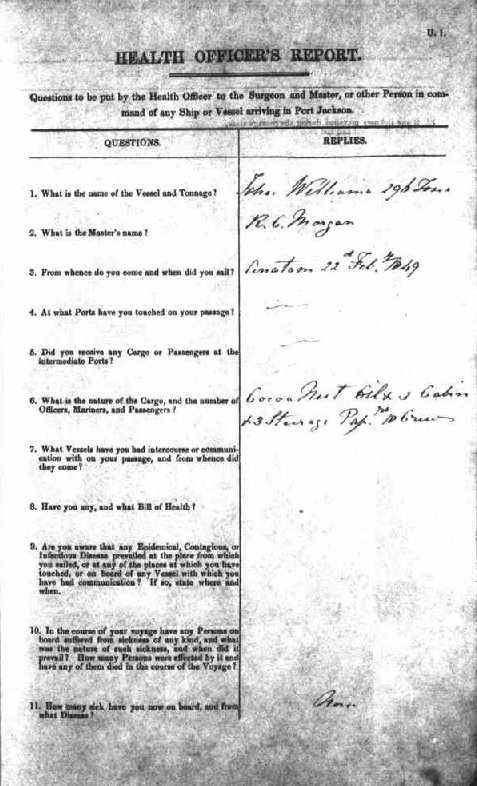 U. 1.
HEALTH OFFICER'S REPORT.
Questions to be put by the Health Officer to the Surgeon and Master, or other Person in com-
mand of any Ship or Vessel arriving in Port Jackson.
QUESTIONS.
REPLIES.
1. What is the name of the Vessel and Tonnage?
John Williams 296 Tons
2. What is the Master's name?
R. C. Morgan
3. From whence do you come and when did you sail?
22nd Feby. 1849
4. At what Ports have you touched on your passage?
5. Did you receive any Cargo or Passengers at the
intermediate Ports?
6. What is the nature of the Cargo, and the number of
Officers, Mariners, and Passengers?
Cocoa Nut Oil & Cabin
& 3 Steerage Crew
7. What Vessels have you had intercourse or communi-
cation with on your passage, and from whence did
they come?
8. Have you any, and what Bill of Health?
9. Are you aware that any Epidemical, Contagious, or
Infectious Disease prevailed at the place from which
you sailed, or at any of the places at which you have
touched, or on board of any Vessel with which you
have had communication? If so, state where and
when.
10. In the course of your voyage have any Persons on
board suffered from sickness of any kind, and what
was the nature of such sickness, and when did it
prevail? How many Persons were affected by it and
have any of them died in the course of the Voyage?
11. How many sick have you now on board, and from
what Disease?
None